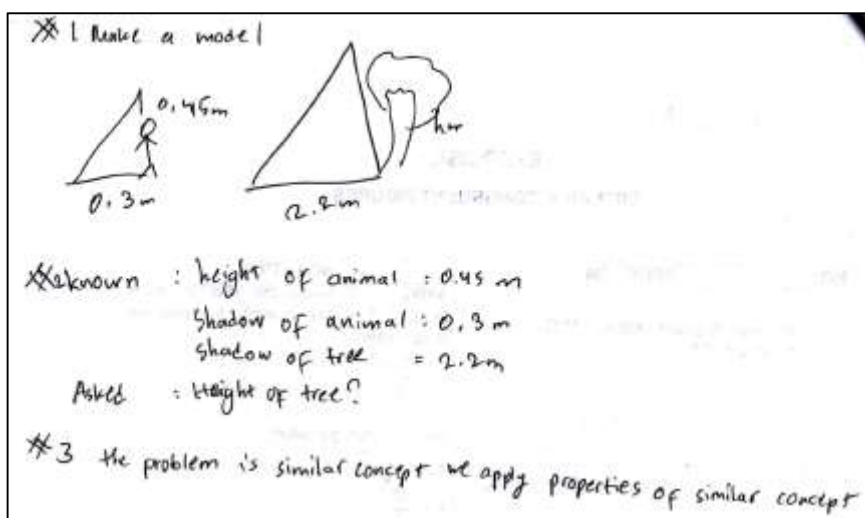 # 1 Make a model
0.45m
hm
0.3m
2.2m
#2 known : height of animal : 0.45 m
Shadow of animal : 0.3 m
Shadow of tree = 2.2m
Asked : Height of tree?
#3 the problem is similar concept we apply properties of similar concept